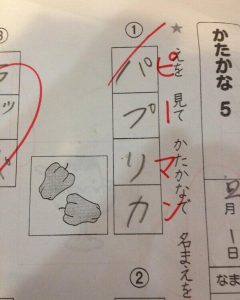 かたかな 5
月 1 日
なま
★ えを 見て かたかなで 名まえを
①
パプリカ
ピーマン
②
③
ッ